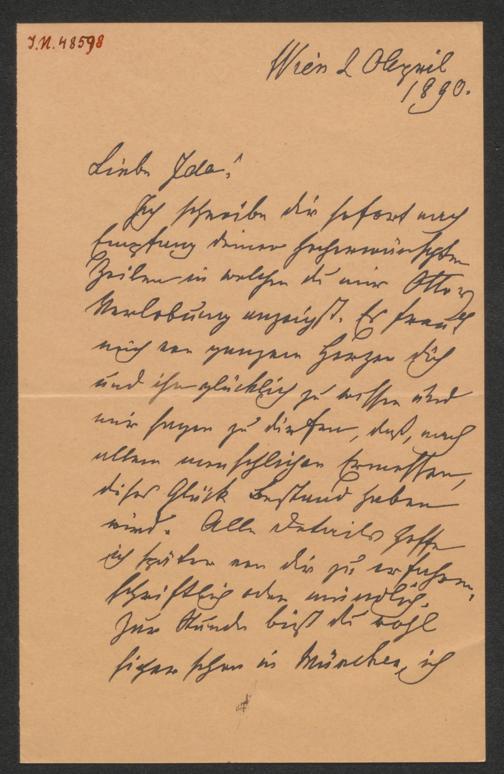 J.N. 48598
Wien 2 April
1890.
Liebe Ida!
Ich schreibe dir sofort nach
Empfang deiner hocherwünschten
Zeilen in welchen du mir Otto's
Verlobung anzeigst. Es freut
mich von ganzem Herzen dich
und ihn glücklich zu wissen und
mir sagen zu dürfen, daß, nach
allem menschlichen Ermessen,
dieses Glück Bestand haben
wird. Alle Details hoffe
ich später von dir zu erfahren,
schriftlich oder mündlich.
Zur Stunde bist du wohl
schon in München, ich